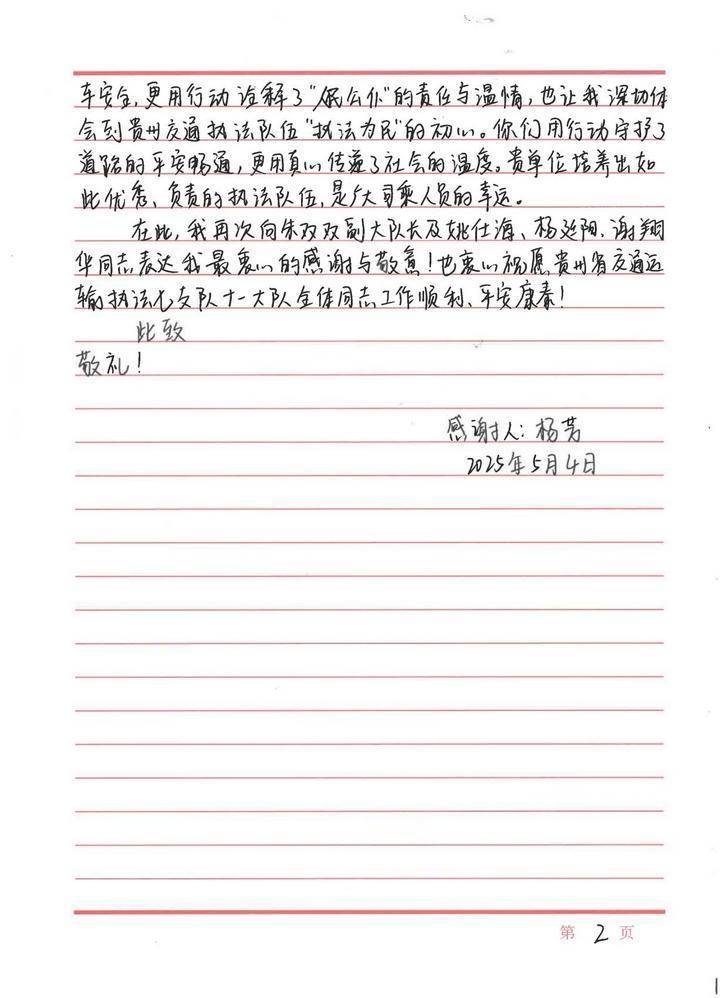 车安全,更用行动诠释了"人民公仆"的责任与温情,也让我深切体
会到贵州交通执法队伍"执法为民"的初心。你们用行动守护了
道路的平安畅通,更用真心传递了社会的温度。贵单位培养出如
此优秀、负责的执法队伍,是广大司乘人员的幸运。
在此,我再次向朱双双副大队长及姚仕海、杨延阳、谢翔
华同志表达我最衷心的感谢与敬意!也衷心祝愿贵州省交通运
输执法七支队十一大队全体同志工作顺利、平安康泰!
此致
敬礼!
感谢人:杨芳
2025年5月4日
第 2 页